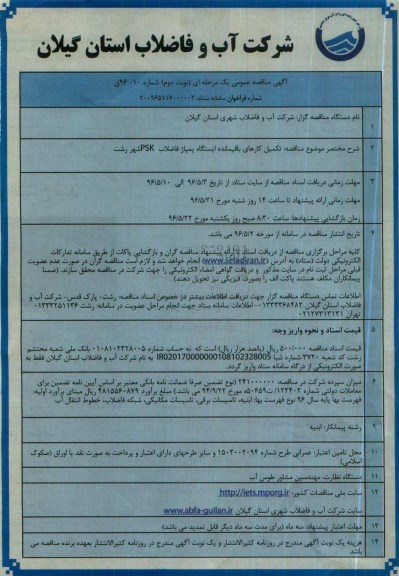 شرکت آب و فاضلاب استان گیلان
آگهی مناقصه عمومی یک مرحله ای (نوبت دوم) شماره ۱۰-۹۶ق
شماره فراخوان سامانه ستاد: ۲۰۰۹۶۵۱۱۷۰۰۰۰۰۳
۱ نام دستگاه مناقصه گزار: شرکت آب و فاضلاب شهری استان گیلان
۲ شرح مختصر موضوع مناقصه: تکمیل کارهای باقیمانده ایستگاه پمپاژ فاضلاب PSK شهر رشت
۳ مهلت زمانی دریافت اسناد مناقصه از سایت ستاد: از تاریخ ۹۶/۵/۳ الی ۹۶/۵/۱۰
مهلت زمانی ارائه پیشنهاد تا ساعت ۱۴ روز شنبه مورخ ۹۶/۵/۲۱
زمان بازگشایی پیشنهادها: ساعت ۸:۳۰ صبح روز یکشنبه مورخ ۹۶/۵/۲۲
۴ تاریخ انتشار مناقصه در سامانه از مورخه ۹۶/۵/۲ می باشد
کلیه مراحل برگزاری مناقصه از دریافت اسناد تا ارائه پیشنهاد مناقصه گران و بازگشایی پاکات از طریق سامانه تدارکات
الکترونیکی دولت (ستاد) به آدرس (www.setadiran.ir) انجام خواهد شد و لازم است مناقصه گران در صورت عدم عضویت
قبلی مراحل ثبت نام در سایت مذکور و دریافت گواهی امضاء الکترونیکی را جهت شرکت در مناقصه محقق سازند. (ضمنا
پیمانکاران مکلف هستند پاکت الف را بصورت فیزیکی نیز تحویل دهند)
اطلاعات تماس دستگاه مناقصه گزار جهت دریافت اطلاعات بیشتر در خصوص اسناد مناقصه: رشت- پارک قدس- شرکت آب و
فاضلاب استان گیلان ۰۱۳۳۳۳۶۸۴۸۲ اطلاعات تماس سامانه ستاد جهت انجام مراحل عضویت در سامانه رشت ۰۱۳۳۳۲۵۱۱۳۶
تهران ۰۲۱۲۷۳۱۳۱۳۱
۵ قیمت اسناد و نحوه واریز وجه:
قیمت اسناد مناقصه ۵۰۰/۰۰۰ ریال (پانصد هزار ریال) است که به حساب شماره ۰۱۰۸۱۰۲۳۲۸۰۰۵ بانک ملی شعبه محتشم
رشت کد شعبه ۳۷۲۰ شماره شبا IR020170000000108102328005 به نام شرکت آب و فاضلاب استان گیلان فقط به
صورت الکترونیکی از درگاه سامانه ستاد واریز گردد.
۶ میزان سپرده شرکت در مناقصه: ۲۴۱۰۰۰۰۰۰ (نوع تضمین صرفا ضمانت نامه بانکی معتبر بر اساس آیین نامه تضمین برای
معاملات دولتی شماره ۱۲۳۴۰۲/ت۵۰۶۵۹ه مورخ ۹۴/۹/۲۲ می باشد.) مبلغ برآورد ۴۸۱۵۵۶۰۸۷۹ ریال مبنای برآورد اولیه:
فهرست بها پایه سال ۹۶ نوع فهرست بها: ابنیه، تاسیسات برقی، تاسیسات مکانیکی، شبکه فاضلاب، خطوط انتقال آب
۹ رشته پیمانکار: ابنیه
۱۰ محل تامین اعتبار: عمرانی طرح شماره ۱۵۰۳۰۰۲۰۹۴ و سایر طرحهای دارای اعتبار و پرداخت به صورت نقد یا اوراق (صکوک
اسلامی)
۱۱ دستگاه نظارت: مهندسین مشاور طوس آب
۱۲ سایت ملی مناقصات کشور: http://iets.mporg.ir
سایت شرکت آب و فاضلاب شهری استان گیلان www.abfa-guilan.ir
۱۳ مهلت اعتبار پیشنهاد: سه ماه (برای مدت سه ماه دیگر قابل تمدید می باشد)
۱۴ هزینه یک نوبت آگهی مندرج در روزنامه کثیرالانتشار و یک نوبت آگهی مندرج در روزنامه کثیرالانتشار بعهده برنده مناقصه می
باشد